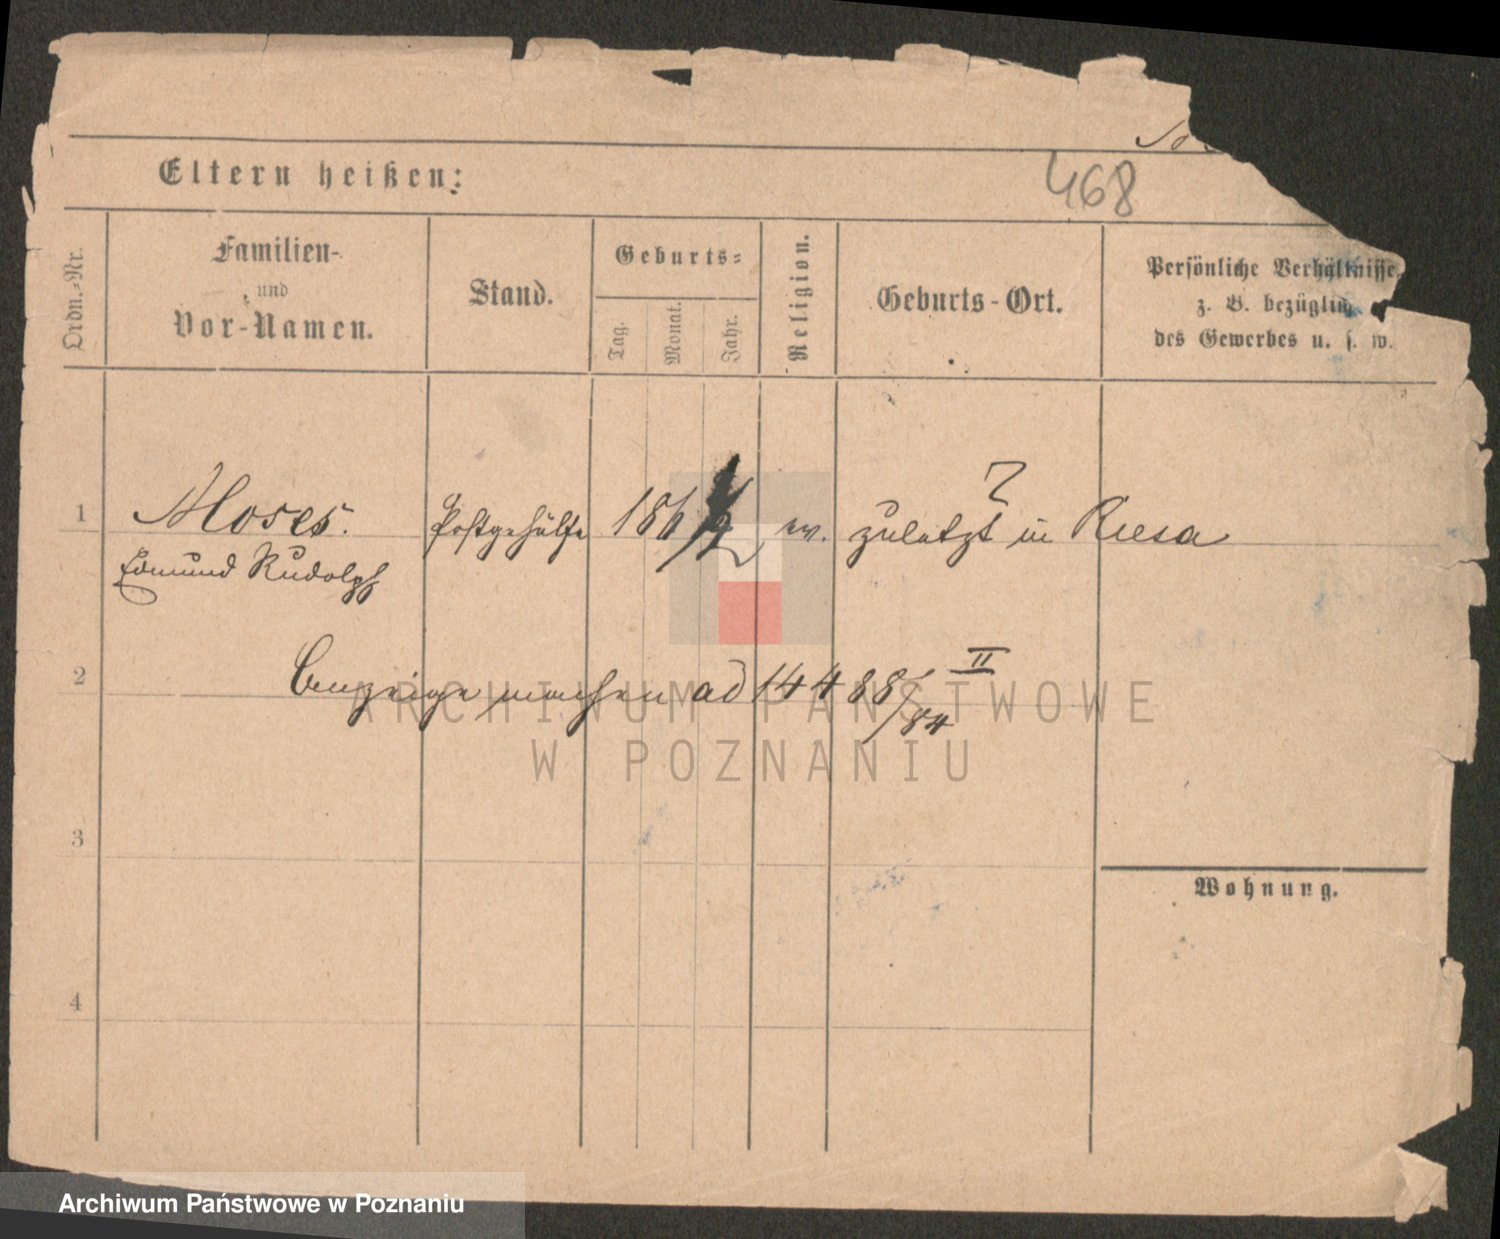 468
Eltern heißen:
Ordn.-Nr.
Familien-
und
Vor-Namen.
Stand.
Geburts-
Tag.
Monat.
Jahr.
Religion.
Geburts-Ort.
Persönliche Verhältnisse
z. B. bezüglich
des Gewerbes u. s. w.
1
Moses.
Edmund Rudolph
Postgehülfe
186
?
zuletzt in Riesa
2
Anzeige machen ad 14488/84 II
3
Wohnung.
4
ARCHIWUM PAŃSTWOWE
W POZNANIU
Archiwum Państwowe w Poznaniu